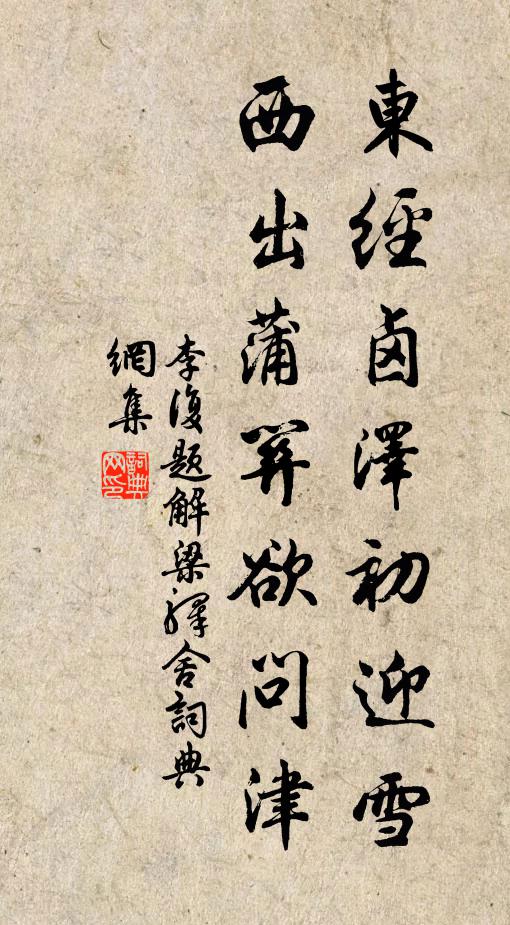 東經鹵澤初迎雪
西出蒲關欲問津
李復題解梁驛舍詞典
網集
詞典網印